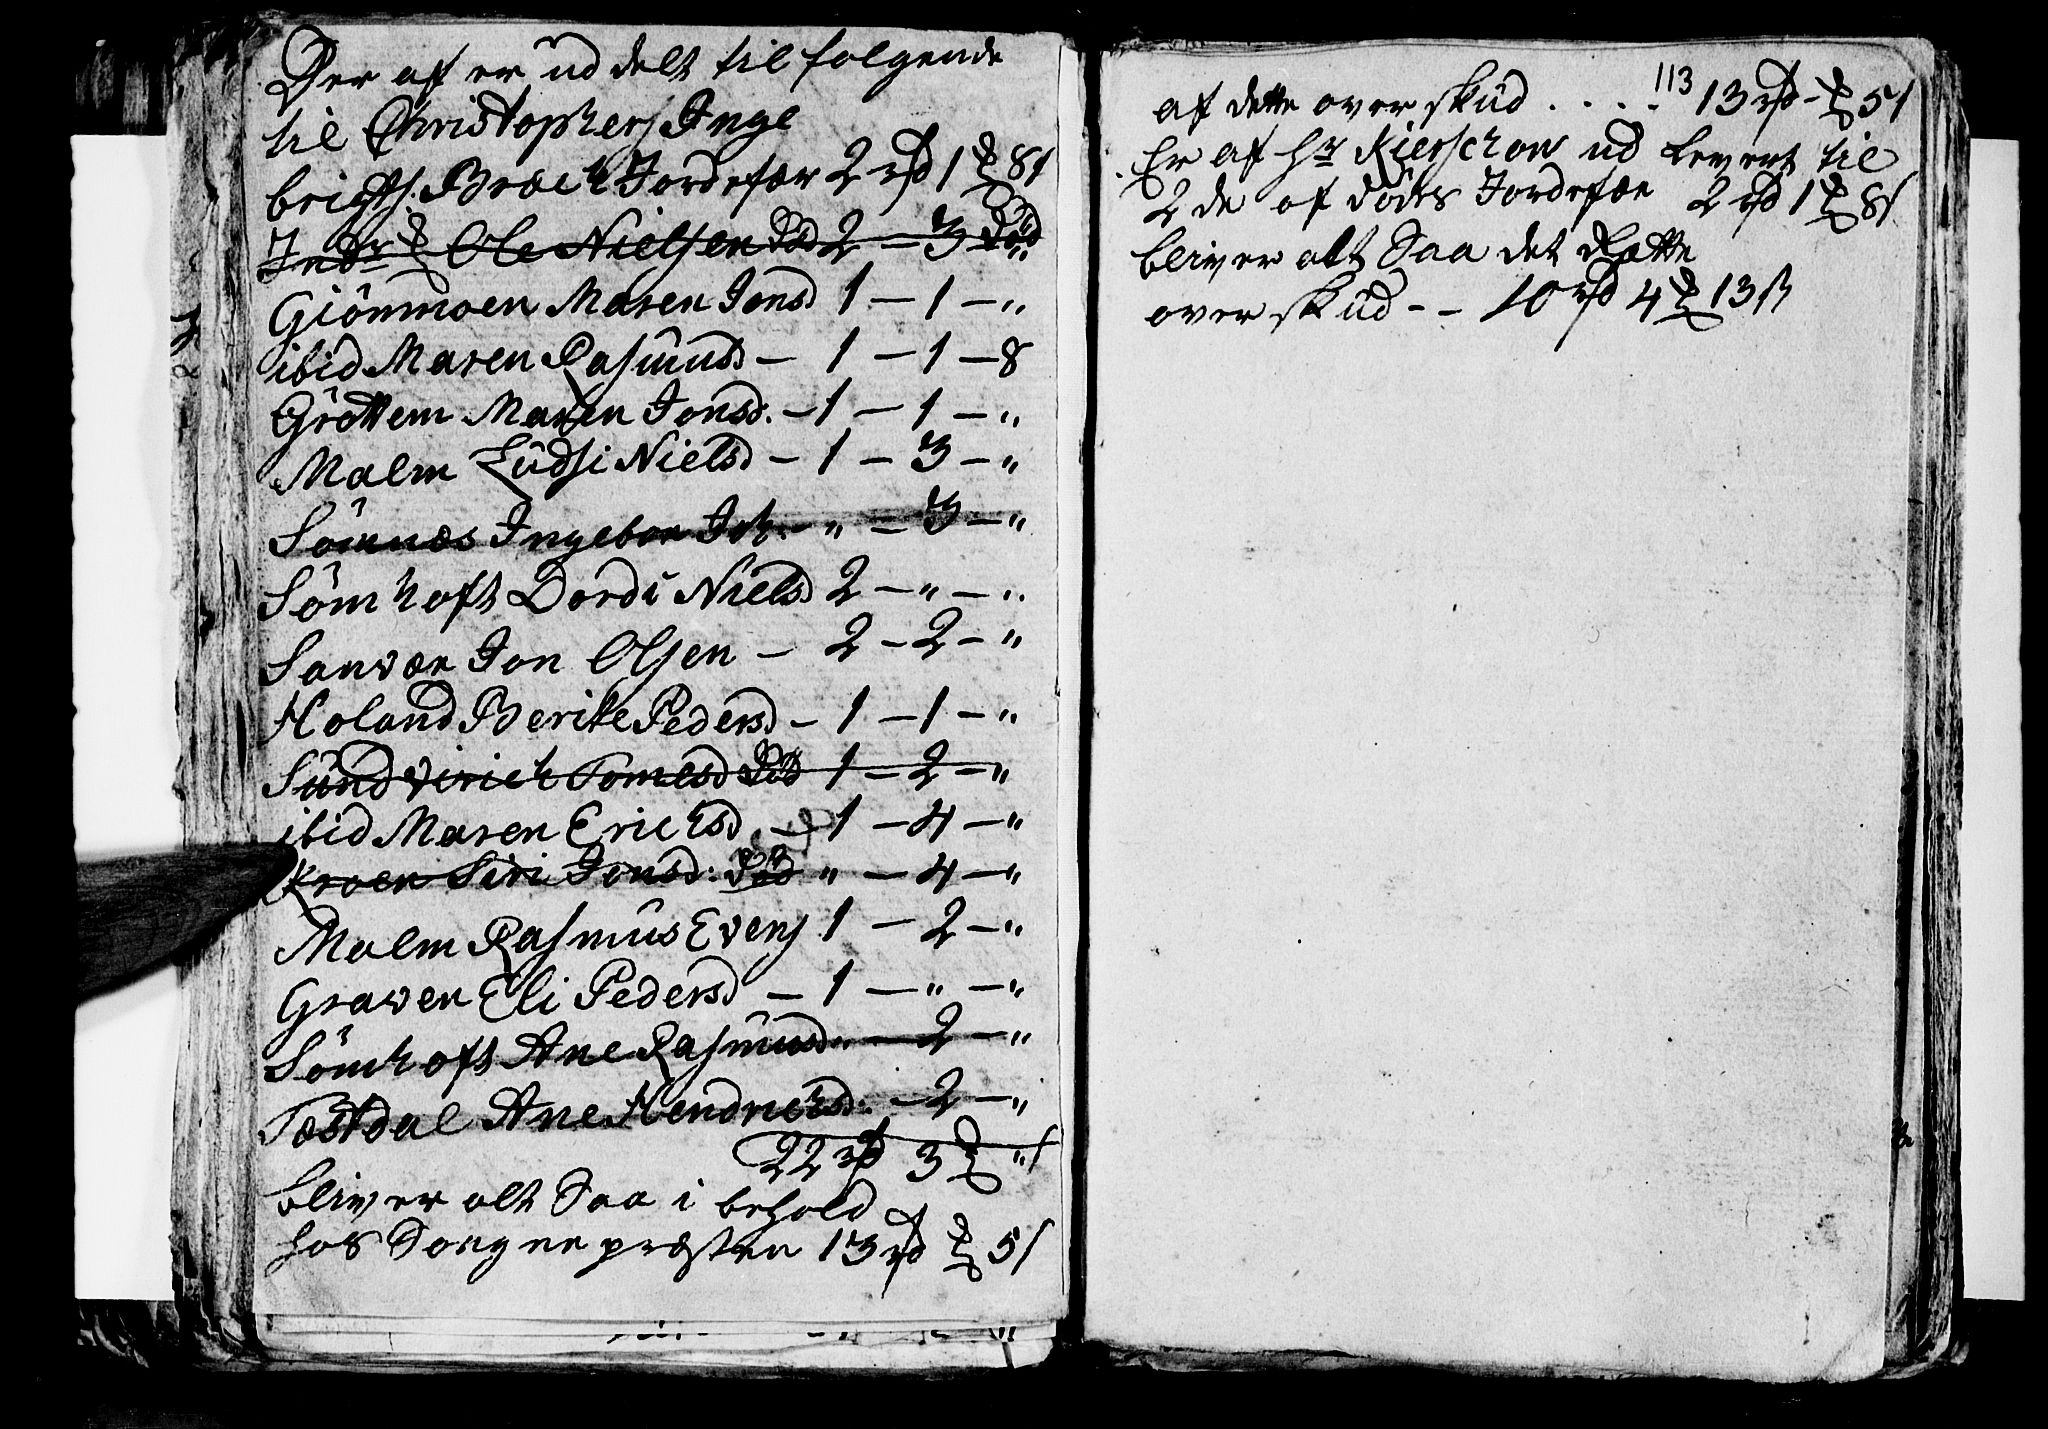 Der af er ud delt til følgende
til Christophers Inge
brigts. Bræch Jordefær 2 rd 1 8s
Indr Ole Nielsen død 2 — 3 død
Giönmoen Maren Jonsd 1 — 1 — "
ibid Maren Rasmusd — 1 — 1 — 8
Gröttem Maren Jonsd. — 1 — 1 — "
Malm Ludsi Nielsd — 1 — 3 — "
Sömnæs Ingebor Joh. — " — 3 — "
Sömhoft Dordi Nielsd 2 — " — "
Sanvær Jon Olsen — 2 — 2 — "
Holand Berite Pedersd — 1 — 1 — "
Sund Tomesd død 1 — 2 — "
ibid Maren Erichsd. — 1 — 4 — "
Kroen Siri Jonsd: død " — 4 — "
Malm Rasmus Evens 1 — 2 — "
Graven Eli Pedersd — 1 — " — "
Sömhoft Ane Rasmusd. " — 2 — "
Tostdal Ane Hendrichsd: — 2 — "
22 rd 3 " s
bliver alt Saa i behold
hos Sorgne præsten 13 rd 5s
113
af dette over skud . . . . 13 rd - 5s
Er af Hr Kierschow ud Levert til
2de af dødes Jordefær 2 rd 1 8s
bliver alt Saa det Rette
over skud - - 10 rd 4 13 s